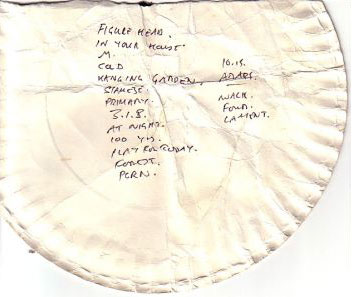 FIGURE HEAD.
IN YOUR HOUSE.
M.
COLD
HANGING GARDEN.
SIAMESE.
PRIMARY.
3.1.8.
AT NIGHT.
100 YRS.
PLAY FOR TODAY.
FOREST.
PORN.
10.15.
WALK.
FOUR.
LAMENT.